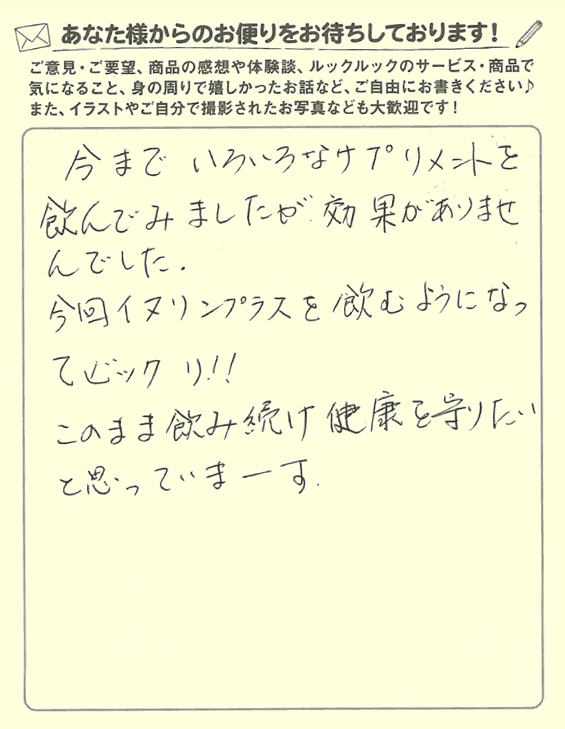 あなた様からのお便りをお待ちしております！
ご意見・ご要望、商品の感想や体験談、ルックルックのサービス・商品で
気になること、身の周りで嬉しかったお話など、ご自由にお書きください♪
また、イラストやご自分で撮影されたお写真なども大歓迎です！
今まで いろいろなサプリメントを
飲んでみましたが 効果がありませ
んでした．
今回イヌリンプラスを飲むようになっ
てビックリ!!
このまま飲み続け健康を守りたい
と思っていまーす．